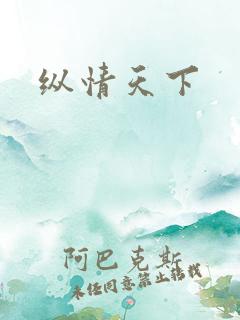 纵情天下
阿巴克斯
未经同意禁止转载